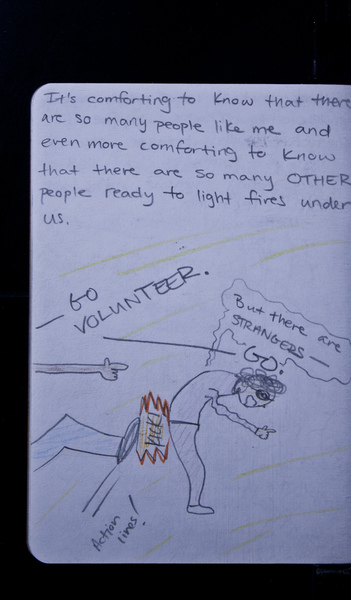 It's comforting to know that there
are so many people like me and
even more comforting to know
that there are so many OTHER
people ready to light fires under
us.
GO
VOLUNTEER.
But there are
STRANGERS —
GO.
KICK!
Action
lines!